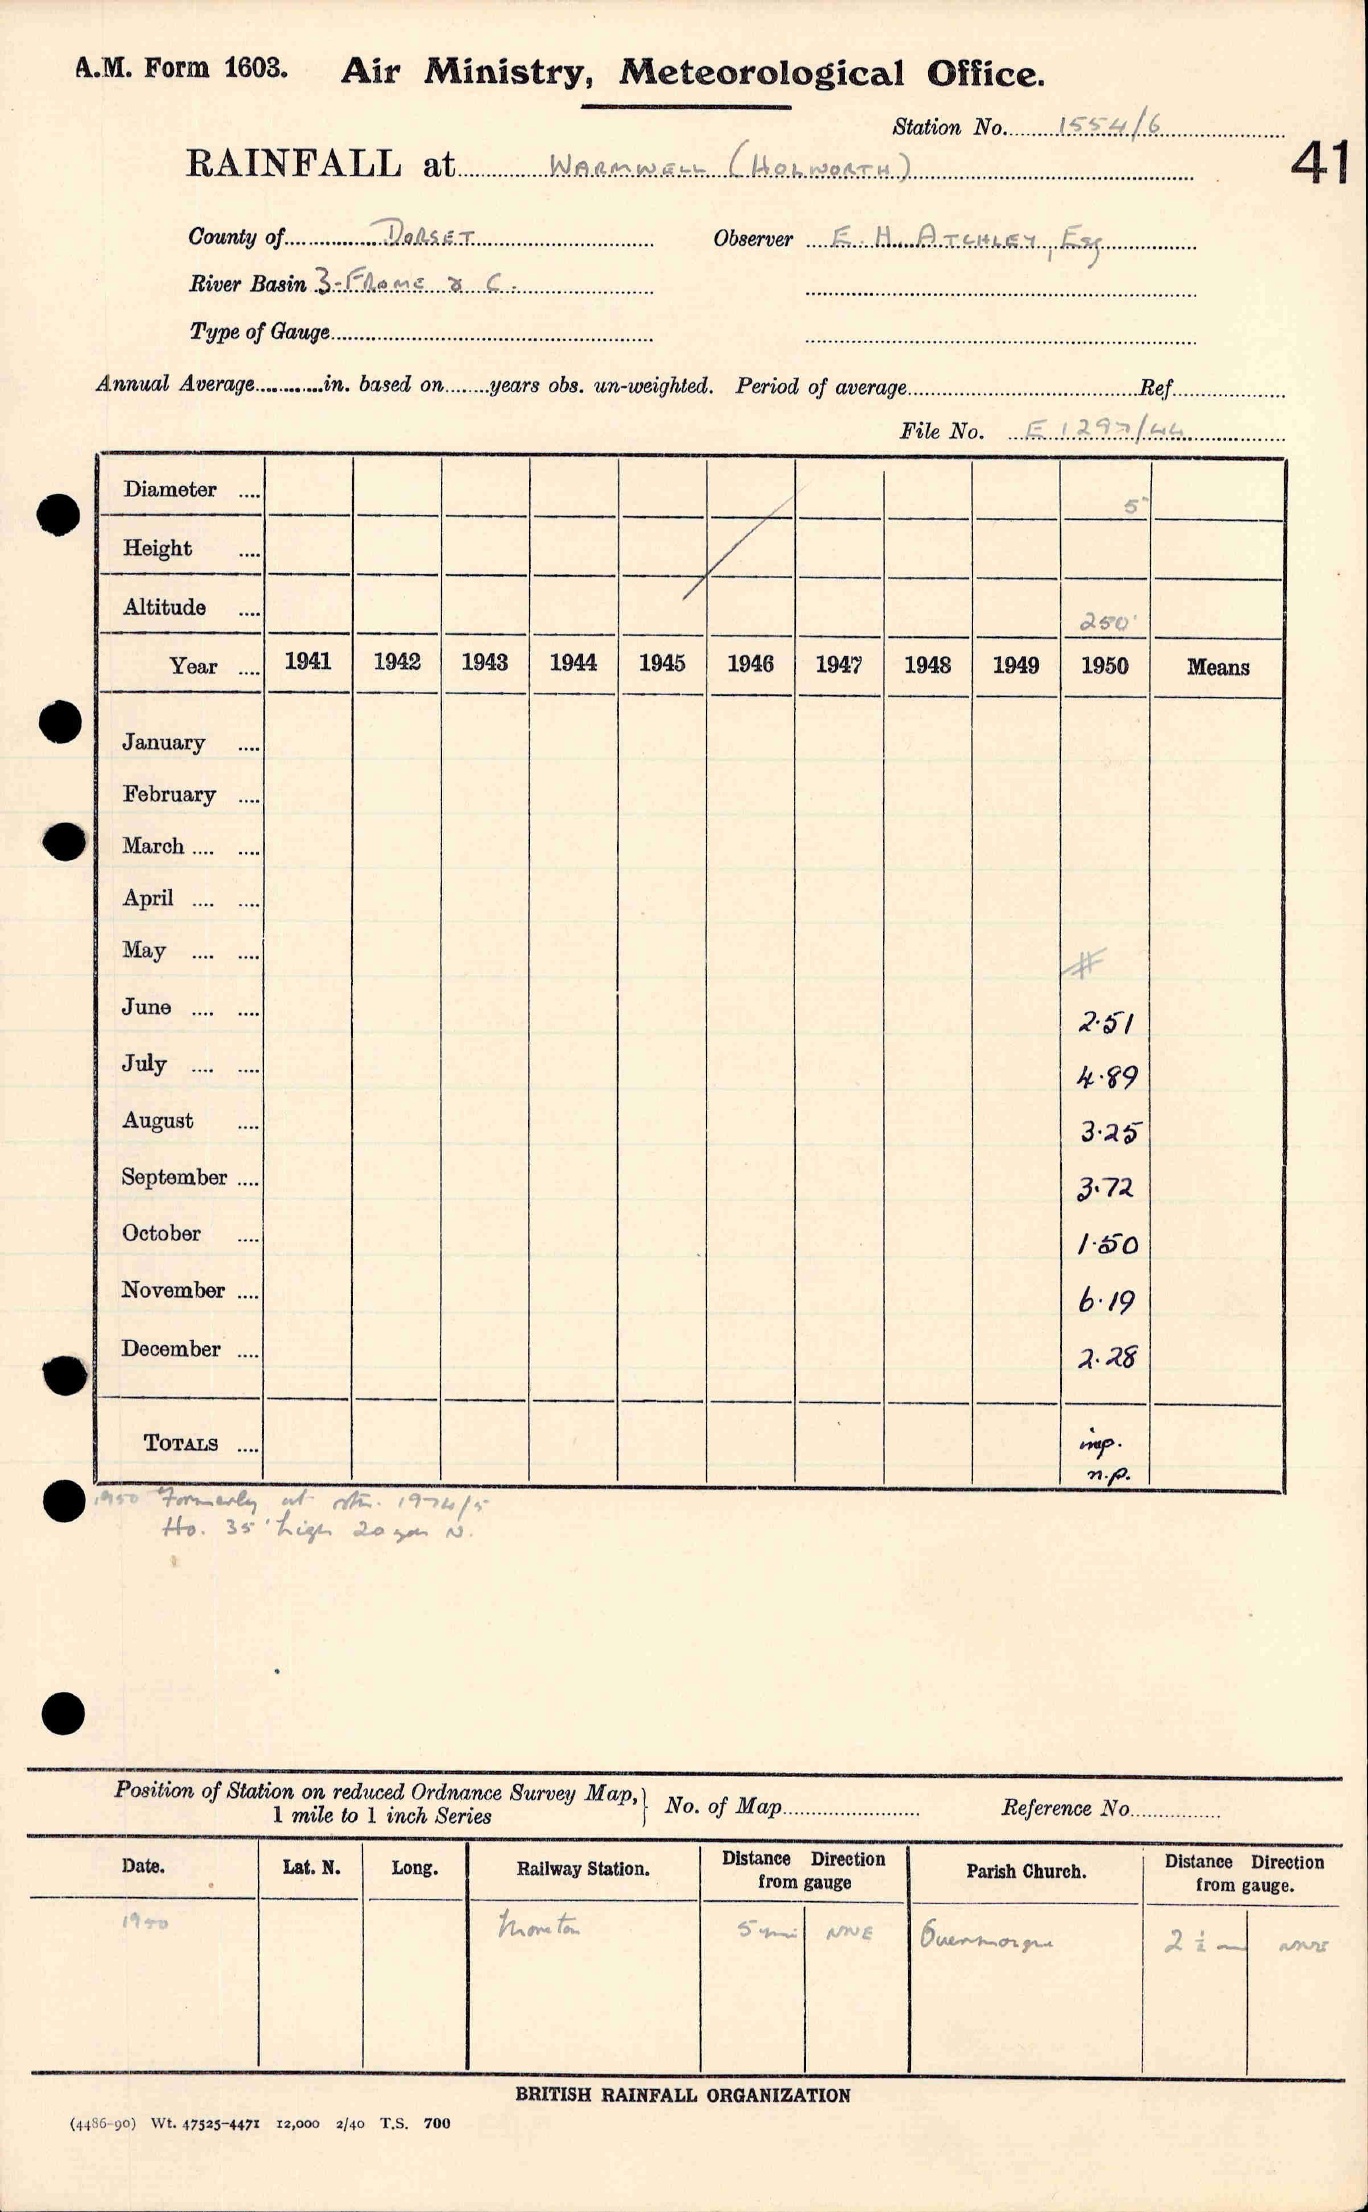 A.M. Form 1603. Air Ministry, Meteorological Office.
Station No. 1554/6
41
RAINFALL at WARMWELL (HOLWORTH)
County of DORSET Observer E. H. ATCHLEY, Esq
River Basin 3-FROME & C.
Type of Gauge
Annual Average in. based on years obs. un-weighted. Period of average Ref
File No. E 1297/44
Diameter .... 5"
Height ....
Altitude .... 250'
Year .... 1941 1942 1943 1944 1945 1946 1947 1948 1949 1950 Means
January ....
February ....
March .... ....
April .... ....
May .... .... #
June .... .... 2.51
July .... .... 4.89
August .... 3.25
September .... 3.72
October .... 1.50
November .... 6.19
December .... 2.28
TOTALS .... inp.
n.p.
1950 Formerly at stn. 1974/5
Ho. 35' high 20 yds N.
Position of Station on reduced Ordnance Survey Map, } No. of Map Reference No
1 mile to 1 inch Series
Date. Lat. N. Long. Railway Station. Distance Direction from gauge Parish Church. Distance Direction from gauge.
1950 Moreton 5 mi NNE Owermoigne 2 ½ m
BRITISH RAINFALL ORGANIZATION
(4486-90) Wt. 47525-4471 12,000 2/40 T.S. 700